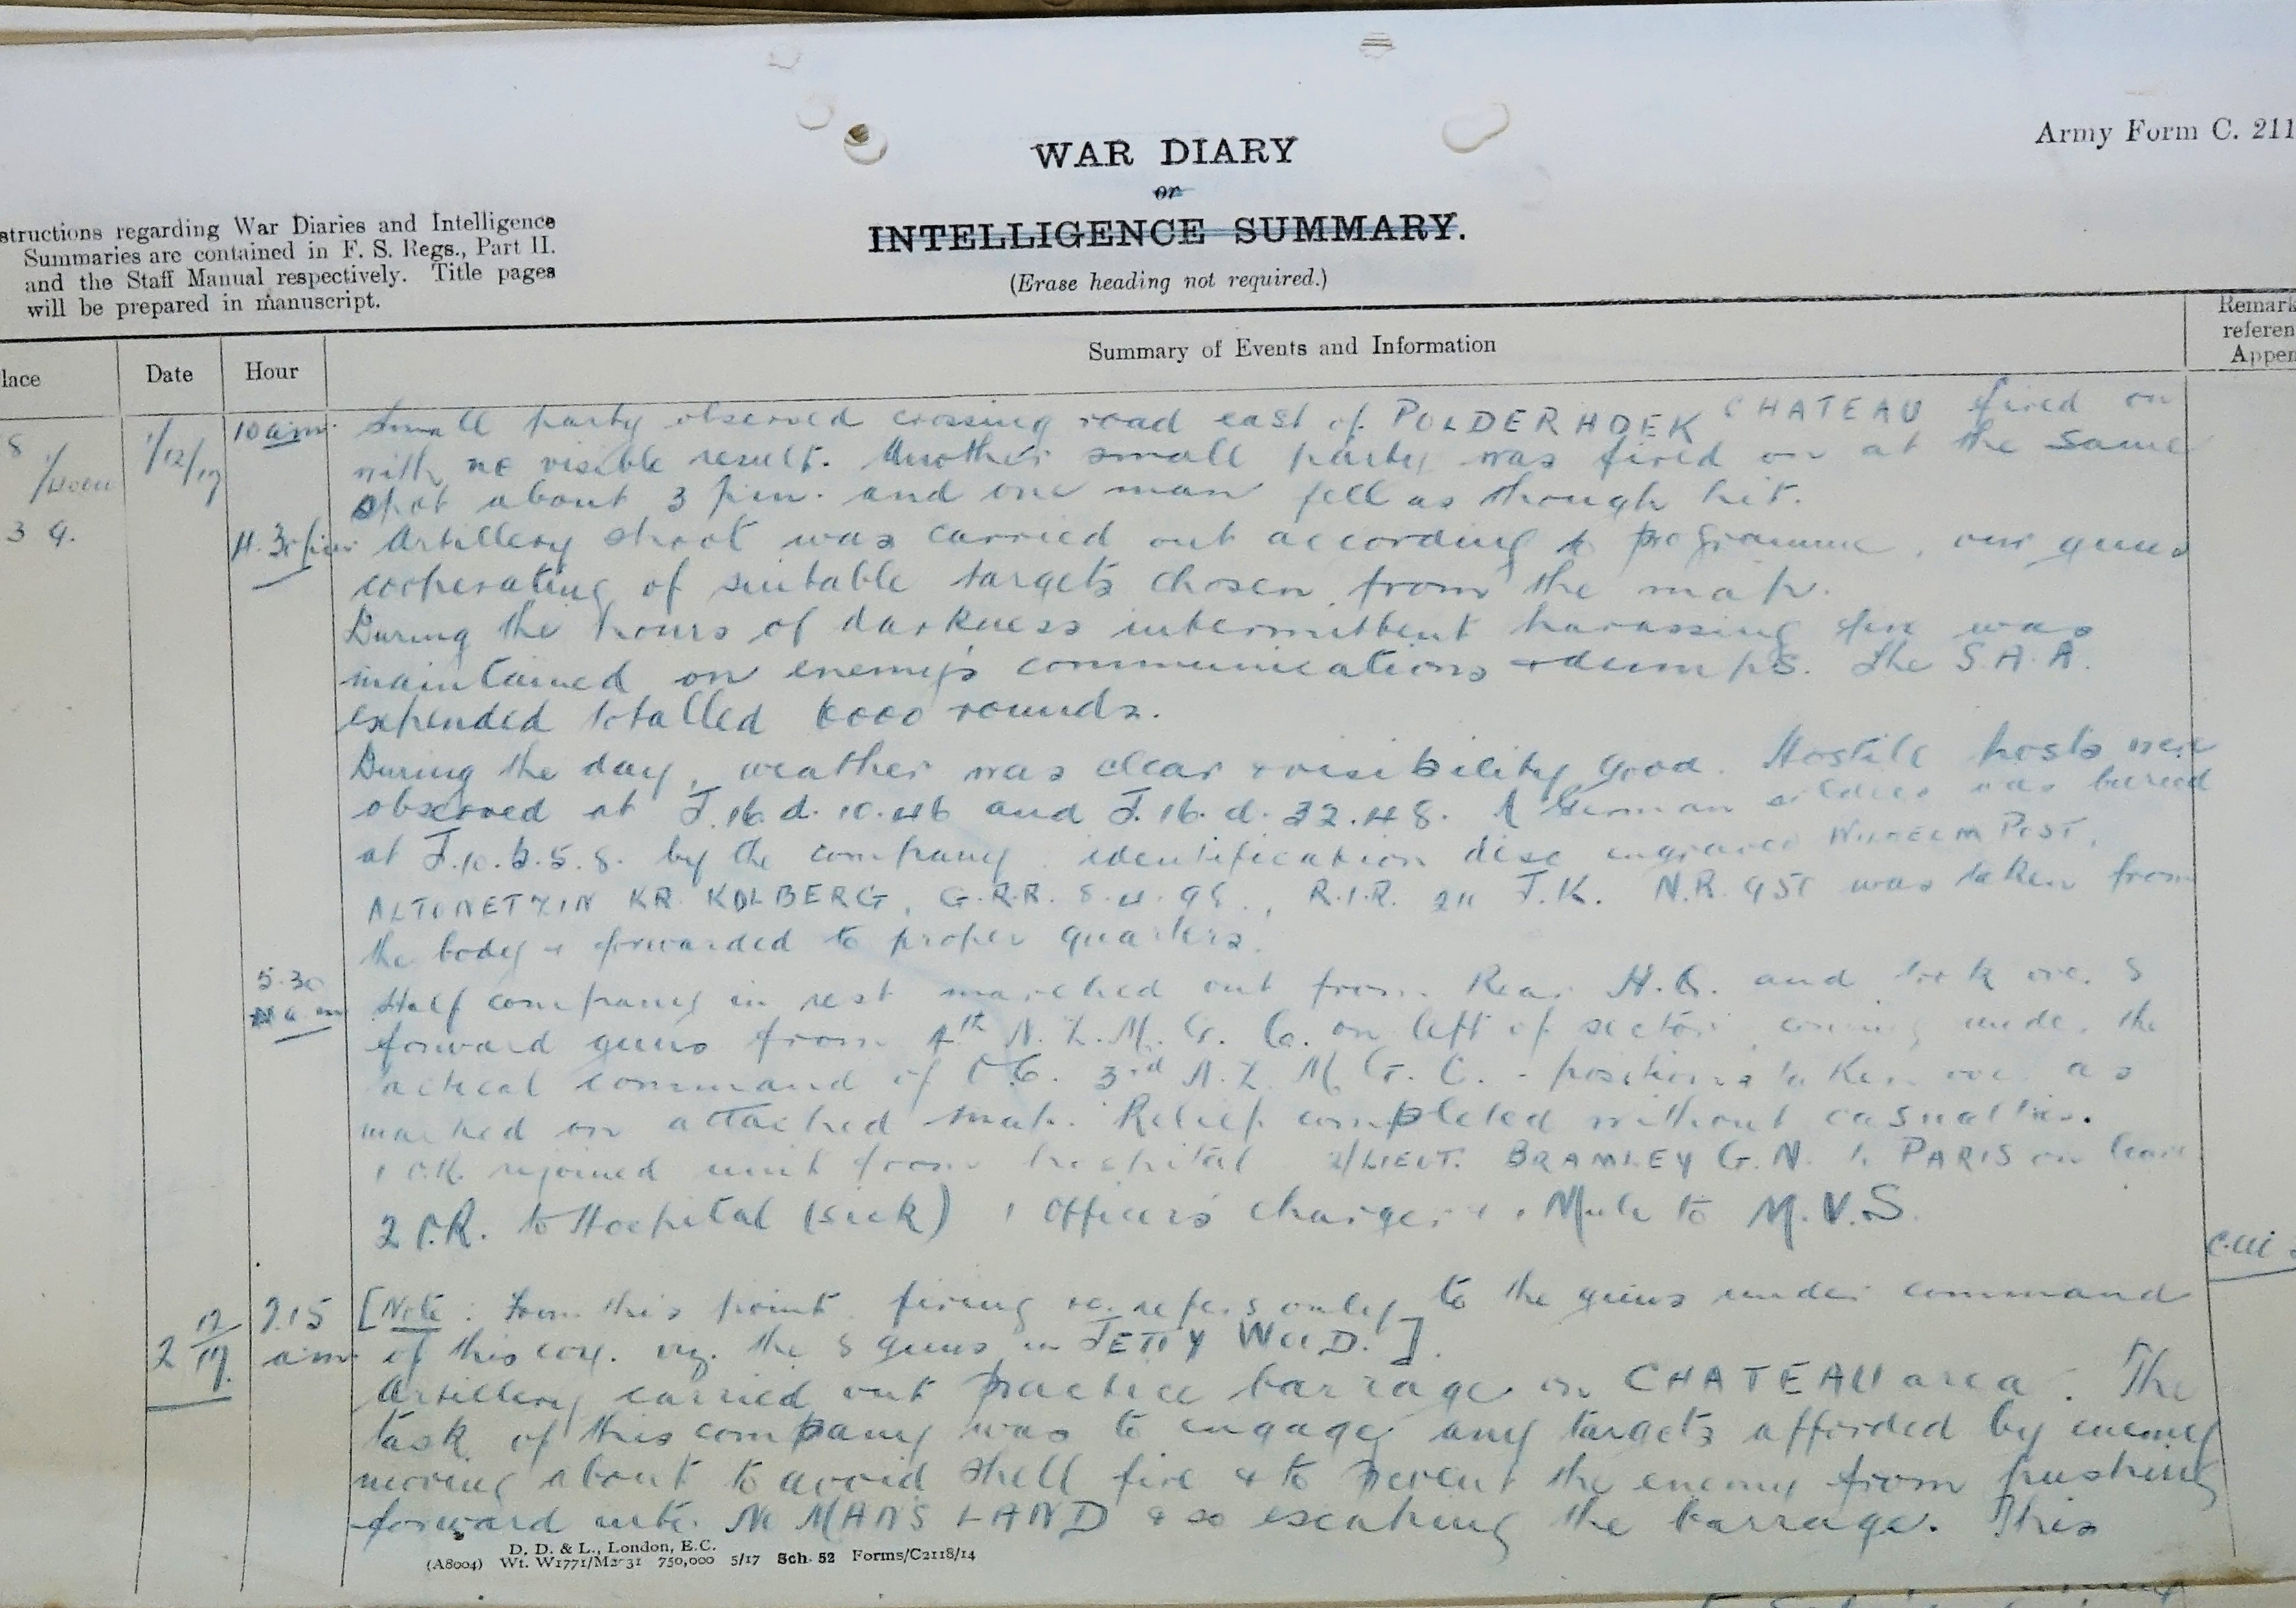 Army Form C. 211
WAR DIARY
or
INTELLIGENCE SUMMARY.
(Erase heading not required.)
structions regarding War Diaries and Intelligence
Summaries are contained in F. S. Regs., Part II.
and the Staff Manual respectively. Title pages
will be prepared in manuscript.
lace
Date
Hour
Summary of Events and Information
Remark
referen
Appen
1/12/17 10 am. Small party observed crossing road east of POLDERHOEK CHATEAU fired on
with no visible result. Another small party was fired on at the same
spot about 3 p.m. and one man fell as though hit.
3 9.
Artillery shoot was carried out according to programme, our guns
cooperating of suitable targets chosen from the map.
During the hours of darkness intermittent harassing fire was
maintained on enemy's communications + dumps. The S.A.A.
expended totalled 6000 rounds.
During the day, weather was clear + visibility good. Hostile posts were
observed at J.16.d.10.46 and J.16.d.32.48. A German soldier was buried
at J.10.b.5.8. by the company identification disc engraved WILHELM POST,
KR. KOLBERG, G.R.R. 8.4.98., R.I.R. 211 J.K. N.R. 951 was taken from
the body + forwarded to proper quarters.
5.30 am Half company in rest marched out from Rear H.Q. and took over 8
forward guns from 4th N.Z.M.G.C. on left of sector, coming under the
tactical command of O.C. 3rd N.Z.M.G.C. - positions taken over as
marked on attached map. Relief completed without casualties.
1 O.R. rejoined unit from hospital 2/LIEUT. BRAMLEY G.N. to PARIS on leave
2 O.R. to Hospital (sick) 1 Officers' charger + 1 Mule to M.V.S.
2 12/17. 7.15 am [Note: From this point firing re. refers only to the guns under command
of this coy. viz. the 8 guns in JETTY WOOD.].
Artillery carried out practice barrage on CHATEAU area. The
task of this company was to engage any targets afforded by enemy
moving about to avoid shell fire + to prevent the enemy from pushing
forward into NO MANS LAND + so escaping the barrage. This
D. D. & L., London, E.C.
(A8004) Wt. W1771/M2 31 750,000 5/17 Sch. 52 Forms/C2118/14